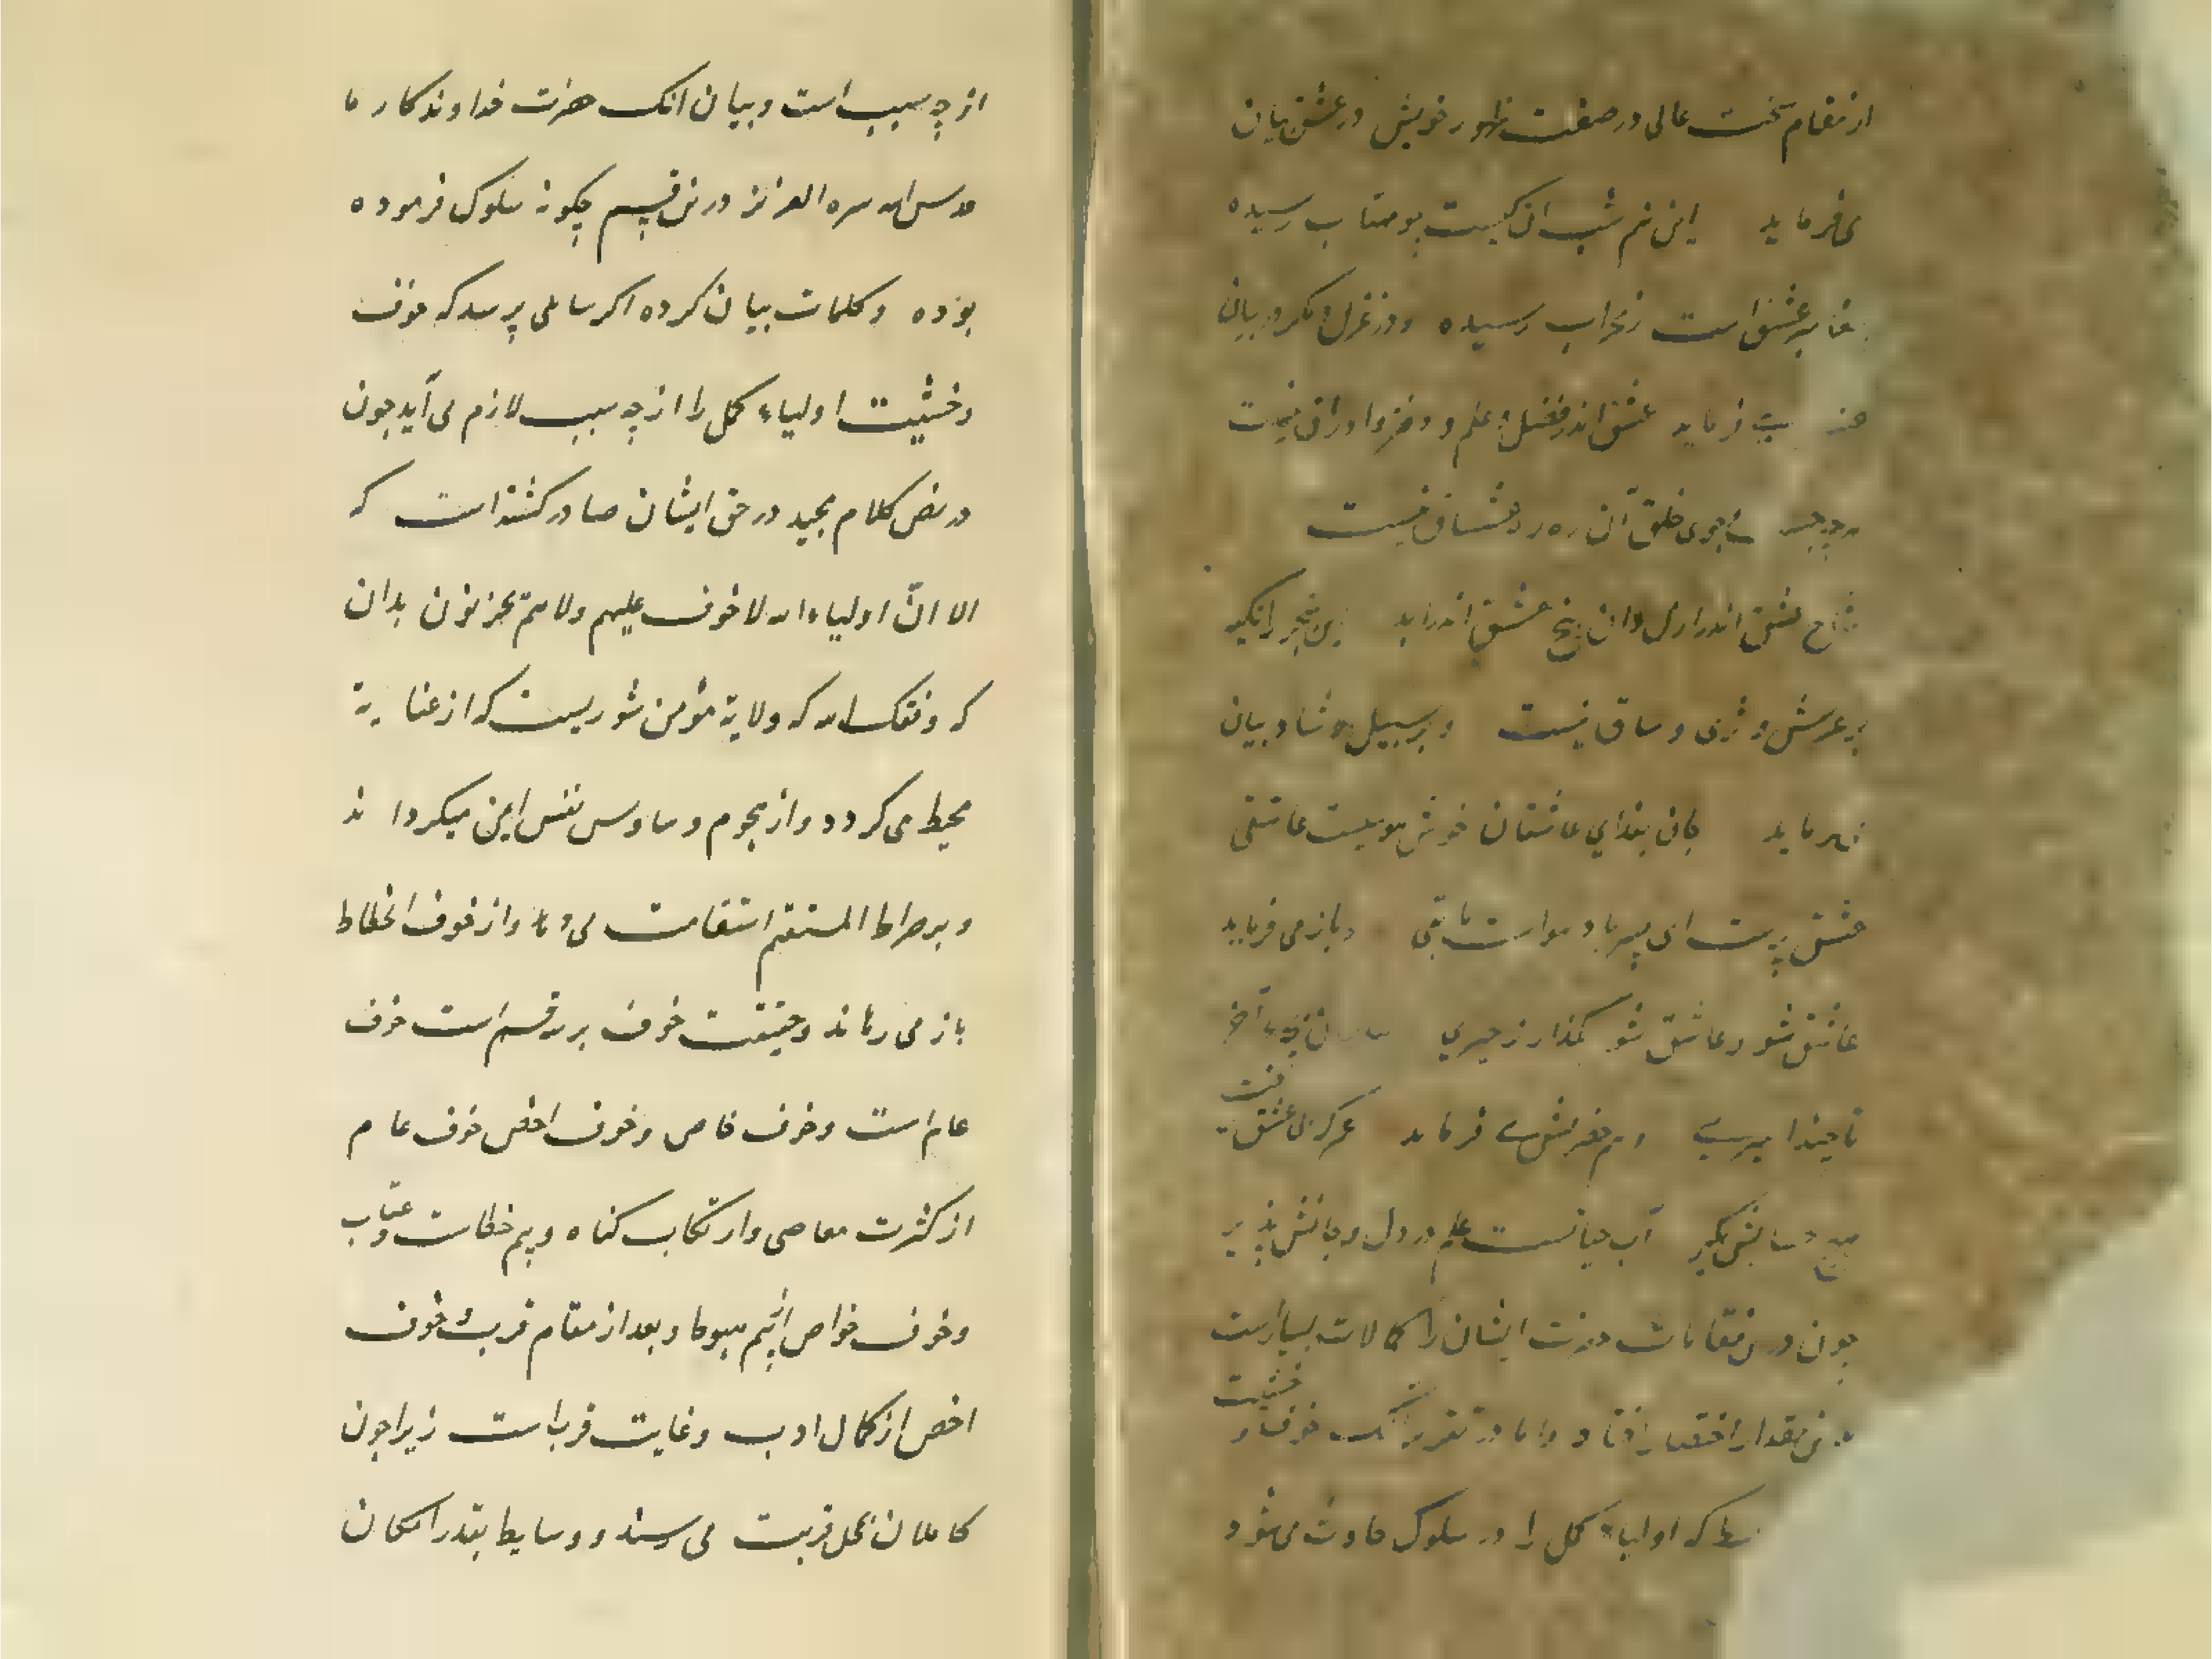 از مقام سخت عالی در صفت ظهور خویش در عشق بیان
می فرماید این نیم شبان کیست چو مهتاب رسیده
عشق است ز محراب رسیده و در غزل دیگر در بیان
فرماید عشق اندر فضل و علم و دفتر و اوراق نیست
خلق آن ره ره عشاق نیست
شاخ عشق اندر ازل دان بیخ عشق اندر ابد این شجر را تکیه
بر عرش و ثری و ساق نیست و بر سبیل بیان
فرماید عاشقان خوش هوسیست عاشقی
عشق پرست ای پسر باد هواست مابقی و باز می فرماید
عاشق شو و عاشق شو بگذار زحیری آخر
تا چند اسیری و هم می فرماید عمر که بی عشق رفت
هیچ حسابش مگیر آب حیاتست در دل و جانش پذیر
چون درین مقامات حضرت ایشان را کمالات بسیارست
بدین مقدار اختصار افتاد و اما در تقریر آنک خوف و خشیت
که اولیاء کمل را در سلوک حادث می شود
از چه سبب است و بیان انک حضرت خداوندگار ما
قدس الله سره العزیز درین قسم چگونه سلوک فرموده
بوده و کلمات بیان کرده اکر سایلی پرسد که خوف
و خشیت اولیاء کمل را از چه سبب لازم می آید چون
در نص کلام مجید در حق ایشان صادر کشته است که
الا انّ اولیاء الله لا خوف علیهم ولا هم یحزنون بدان
که وفقک الله که ولایة مؤمن سوریست که از عنایة
محیط می کردد و از هجوم وساوس نفس ایمن میکرداند
و بر صراط المستقیم استقامت می دهد و از خوف انحطاط
باز می رهاند و حقیقت خوف بر سه قسم است خوف
عام است و خوف خاص و خوف اخص خوف عام
از کثرت معاصی و ارتکاب کناه و بیم خطاست و عتاب
و خوف خواص از بیم هبوط و بعد از مقام قربت و خوف
اخص از کمال ادب و غایت قرب است زیرا چون
کاملان بمحل قربت می رسند و وسایط بقدر امکان